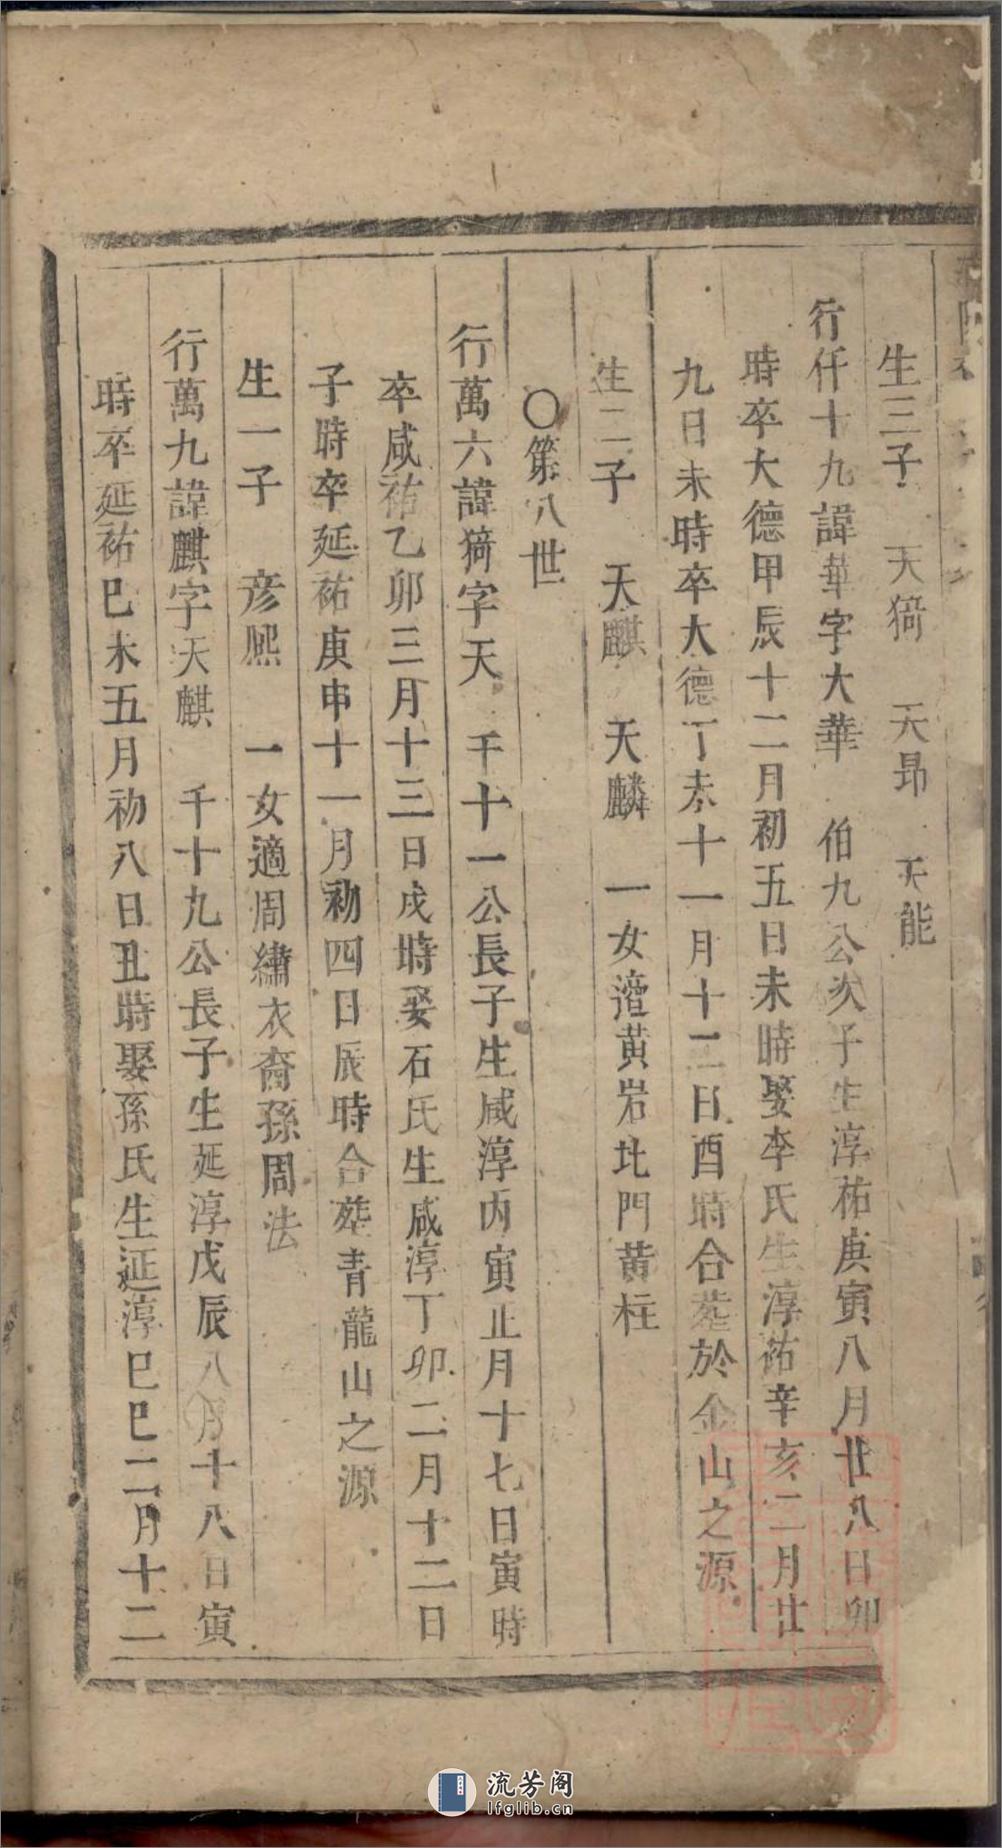 生三子 天猗 天昂 天能
行仟十九諱華字大華 伯九公次子生淳祐庚寅八月廿八日卯
時卒大德甲辰十二月初五日未時娶李氏生淳祐辛亥二月廿
九日未時卒大德丁未十一月十二日酉時合塟於金山之源
生二子 天麒 天麟 一女適黃岩北門黃柱
○第八世
行萬六諱猗字天 千十一公長子生咸淳丙寅正月十七日寅時
卒咸祐乙卯三月十三日戌時娶石氏生咸淳丁卯二月十二日
子時卒延祐庚申十一月初四日辰時合塟青龍山之源
生一子 彦熈 一女適周繡衣裔孫周法
行萬九諱麒字天麒 千十九公長子生延淳戊辰八月十八日寅
時卒延祐巳未五月初八日丑時娶孫氏生延淳巳巳二月十二
流芳阁
lfglib.cn